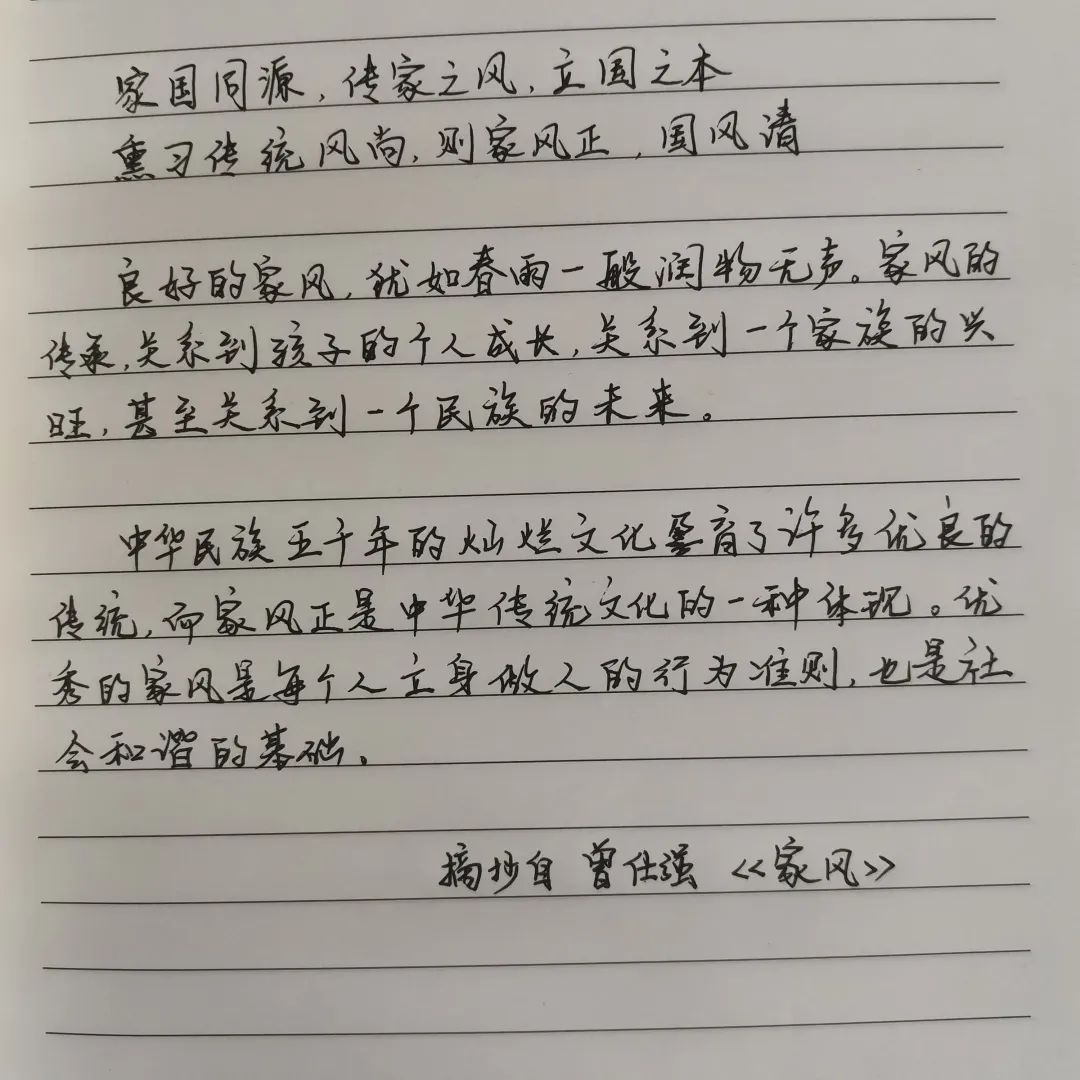 家国同源,传家之风,立国之本
熏习传统风尚,则家风正,国风清
良好的家风,犹如春雨一般润物无声。家风的
传承,关系到孩子的个人成长,关系到一个家族的兴
旺,甚至关系到一个民族的未来。
中华民族五千年的灿烂文化孕育了许多优良的
传统,而家风正是中华传统文化的一种体现。优
秀的家风是每个人立身做人的行为准则,也是社
会和谐的基础。
摘抄自 曾仕强 《家风》